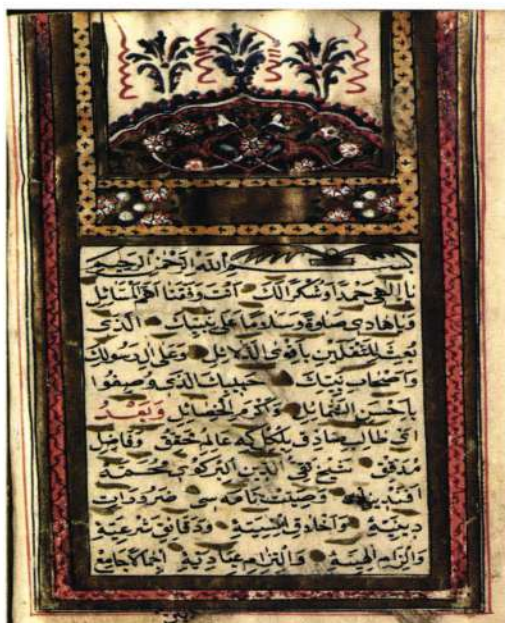 بسم الله الرحمن الرحيم
يا الهي حمدا وشكرا لك انت وفقتنا اهم المسائل
ويا هادي صلوة وسلاما على نبيك الذي
بعث للثقلين باقوى الدلائل وعلى ال رسولك
واصحاب نبيك حبيبك الذي وصفوا
باحسن الشمائل واكرم الخصائل وبعد
اى طالب صادق بلكل كه عالم محقق وفاضل
مدقق شيخ تقي الدين البركوي محمد
افندينك وصيت نامه سى ضروريات
دينية واخلاق حسنية ودقائق شرعية
والزام الهية والتزام عبادية اجمالا جامع